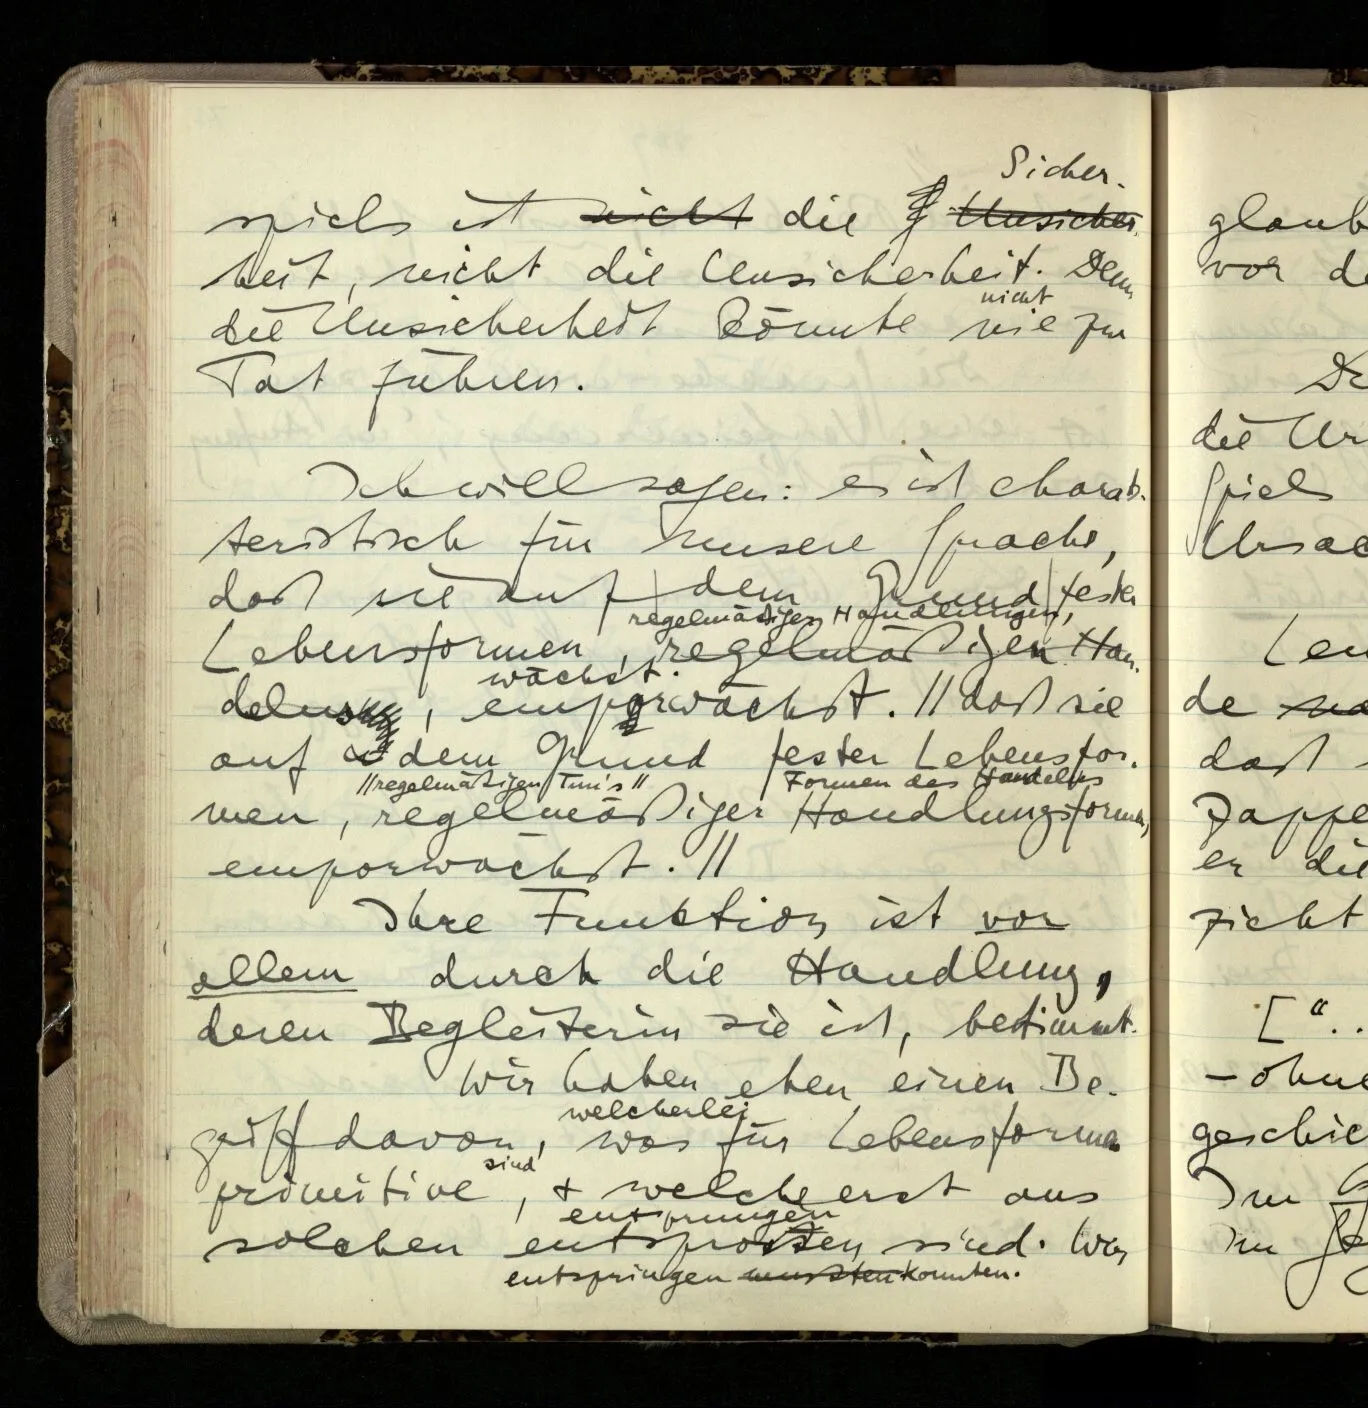 Sicher-
spiels ist nicht die Unsicher-
heit, nicht die Unsicherheit. Denn
nicht
die Unsicherheit könnte nie zur
Tat führen.
Ich will sagen: es ist charak-
teristisch für unsere Sprache,
daß sie auf dem Grund fester
regelmäßiger Handlungen,
Lebensformen, regelmäßigen Han-
wächst.
delns, emporwächst. // daß sie
auf dem Grund fester Lebensfor-
//regelmäßigen Tun's// Formen des Handelns
men, regelmäßiger Handlungsformen,
emporwächst. //
Ihre Funktion ist vor
allem durch die Handlung,
deren Begleiterin sie ist, bestimmt.
Wir haben eben einen Be-
welcherlei
griff davon, was für Lebensformen
sind
primitive, + welche erst aus
entsprungen
solchen entsprossen sind. Wir
entspringen mussten konnten.
glaub
vor de
De
die Ur
Spiels
Ursac
Len
de
daß
Zappe
er die
zieht
[“..
– ohne
geschie
Im
im